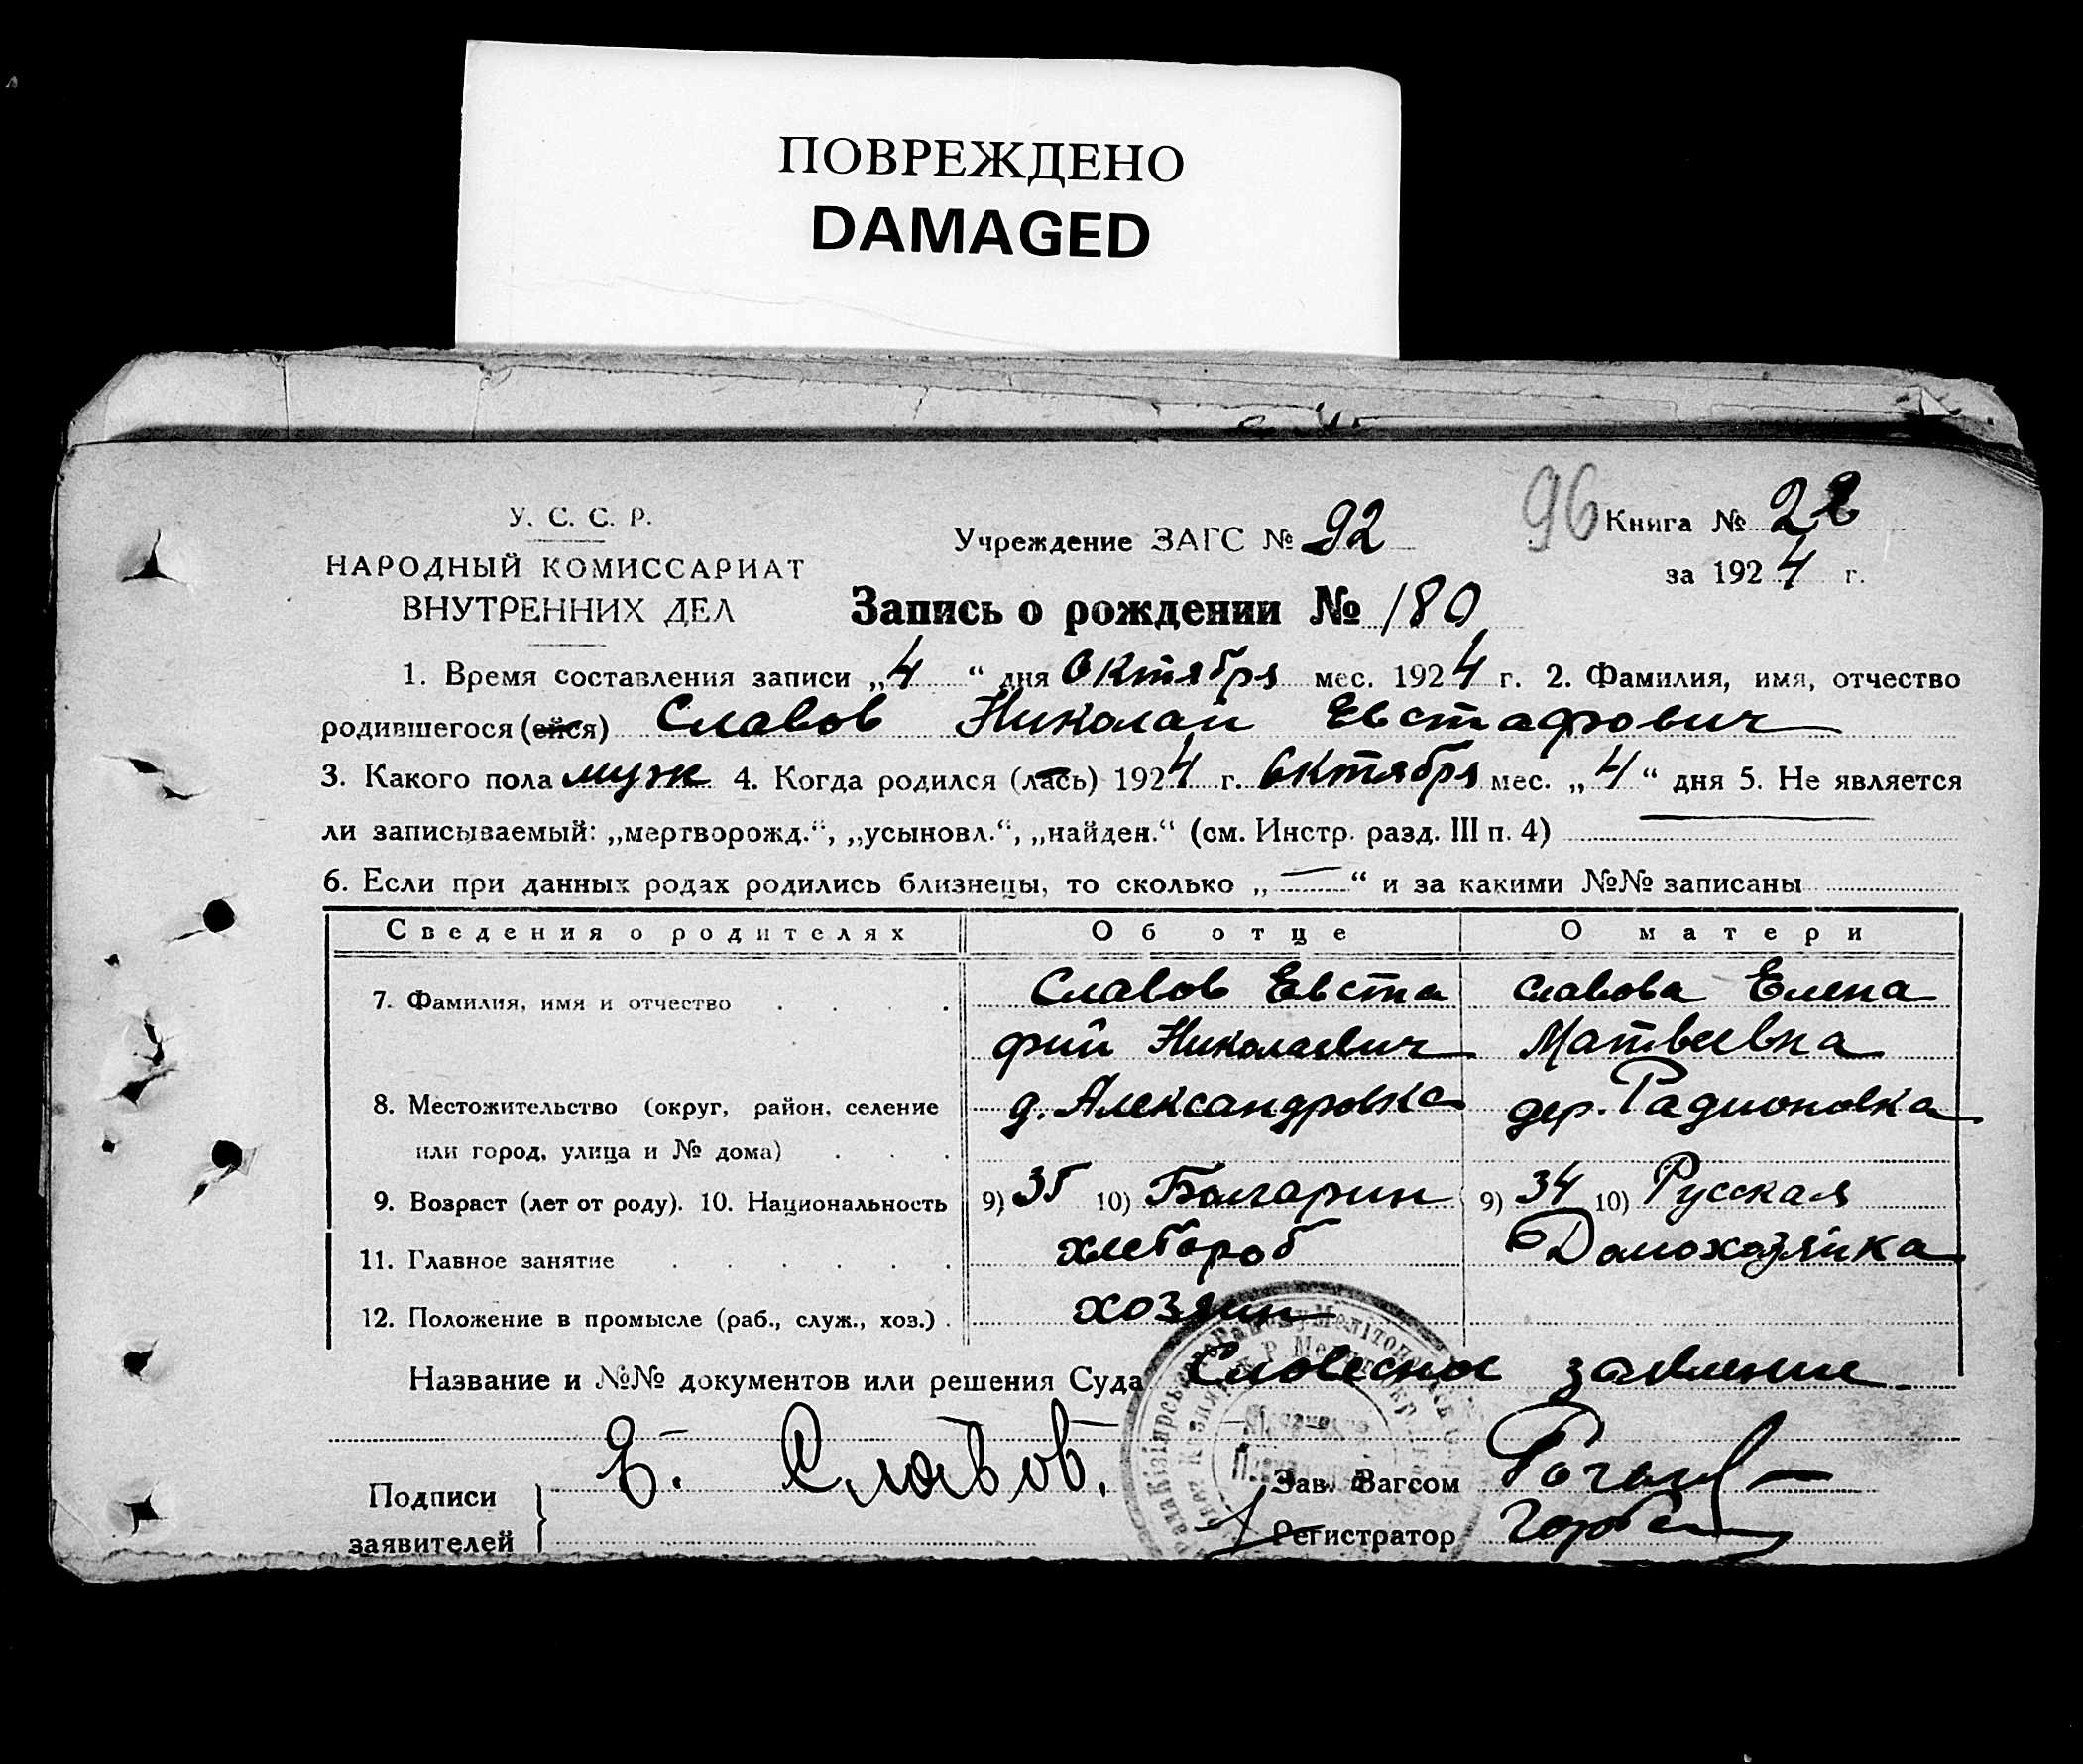 ПОВРЕЖДЕНО
DAMAGED
У. С. С. Р.
НАРОДНЫЙ КОМИССАРИАТ
ВНУТРЕННИХ ДЕЛ
Учреждение ЗАГС № 92
96 Книга № 22
за 1924 г.
Запись о рождении № 180
1. Время составления записи „4“ дня Октября мес. 1924 г. 2. Фамилия, имя, отчество
родившегося (ейся) Славов Николай Евстафович
3. Какого пола муж 4. Когда родился (лась) 1924 г. Октября мес. „4“ дня 5. Не является
ли записываемый: „мертворожд.“, „усыновл.“, „найден.“ (см. Инстр. разд. III п. 4)
6. Если при данных родах родились близнецы, то сколько „—“ и за какими №№ записаны
Сведения о родителях Об отце О матери
7. Фамилия, имя и отчество . . . . Славов Евста Славова Елена
фий Николаевич Матвеевна
8. Местожительство (округ, район, селение д. Александровка дер. Радионовка
или город, улица и № дома) . . .
9. Возраст (лет от роду). 10. Национальность 9) 35 10) Болгарин 9) 34 10) Русская
11. Главное занятие . . . . . . хлебороб Домохозяйка
12. Положение в промысле (раб., служ., хоз.) . хозяин
Название и №№ документов или решения Суда Словесное заявление
Подписи Е. Славов. Зав. Загсом
заявителей Регистратор